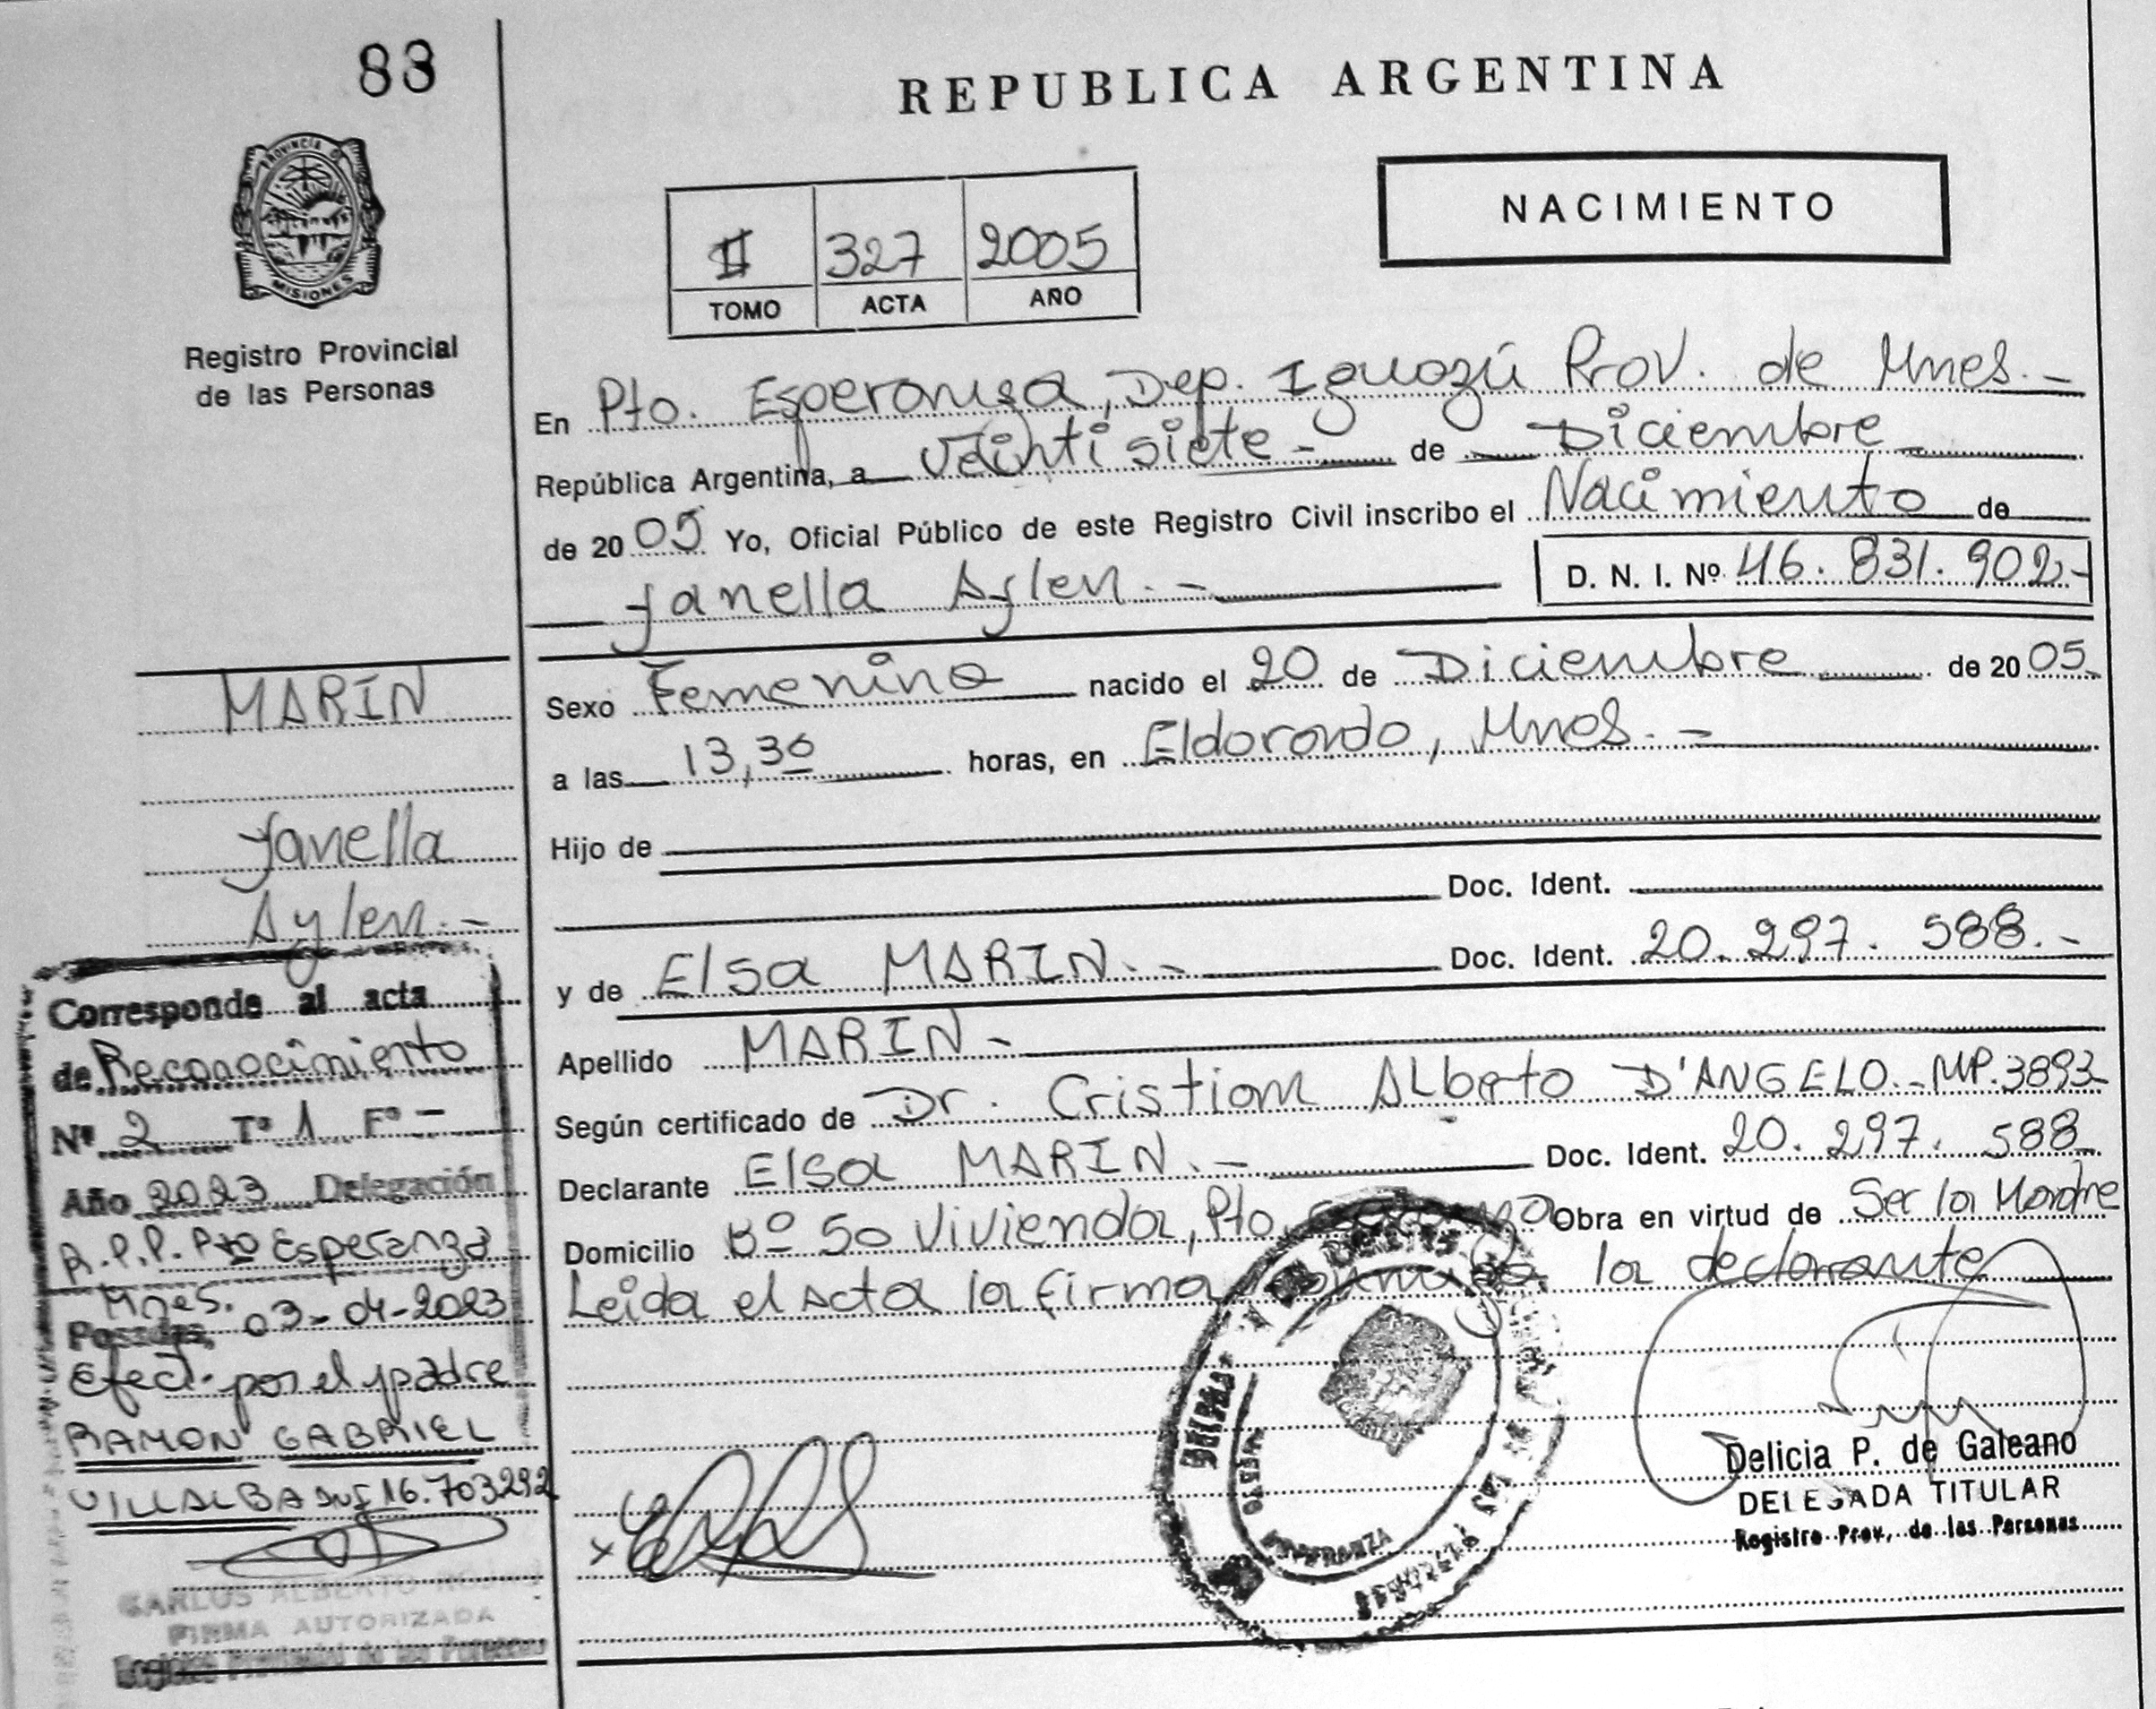 83
REPUBLICA ARGENTINA
PROVINCIA D
MISIONES
Registro Provincial
de las Personas
II 327 2005
TOMO ACTA AÑO
NACIMIENTO
En Pto. Esperanza, Dep. Iguazú Prov. de Mnes.-
República Argentina, a Veintisiete - de Diciembre
de 2005 Yo, Oficial Público de este Registro Civil inscribo el Nacimiento de
Yanella Aylen.- D. N. I. Nº 46.831.902.-
Sexo Femenino nacido el 20 de Diciembre de 2005
a las 13,30 horas, en Eldorado, Mnes.-
Hijo de
Doc. Ident.
y de Elsa MARIN.- Doc. Ident. 20.297.588.-
Apellido MARIN-
Según certificado de Dr. Cristian ALberto D'ANGELO.-MP.3893
Declarante Elsa MARIN.- Doc. Ident. 20.297.588
Domicilio Bº 50 Vivienda, Pto. Obra en virtud de Ser la Madre
Leida el Acta la firma la declarante
Delicia P. de Galeano
DELEGADA TITULAR
Registro Prov. de las Personas
ESPERANZA
MARÍN
Yanella
Aylen.-
Corresponde al acta
de Reconocimiento
Nº 2 Tº 1 Fº -
Año 2023 Delegación
R.P.P. Pto Esperanza
Mnes.
Posadas, 03-04-2023
Efect. por el padre
RAMON GABRIEL
VILLALBA DNI 16.703.292
CARLOS ALBERTO
FIRMA AUTORIZADA
Registro Provincial de las Personas